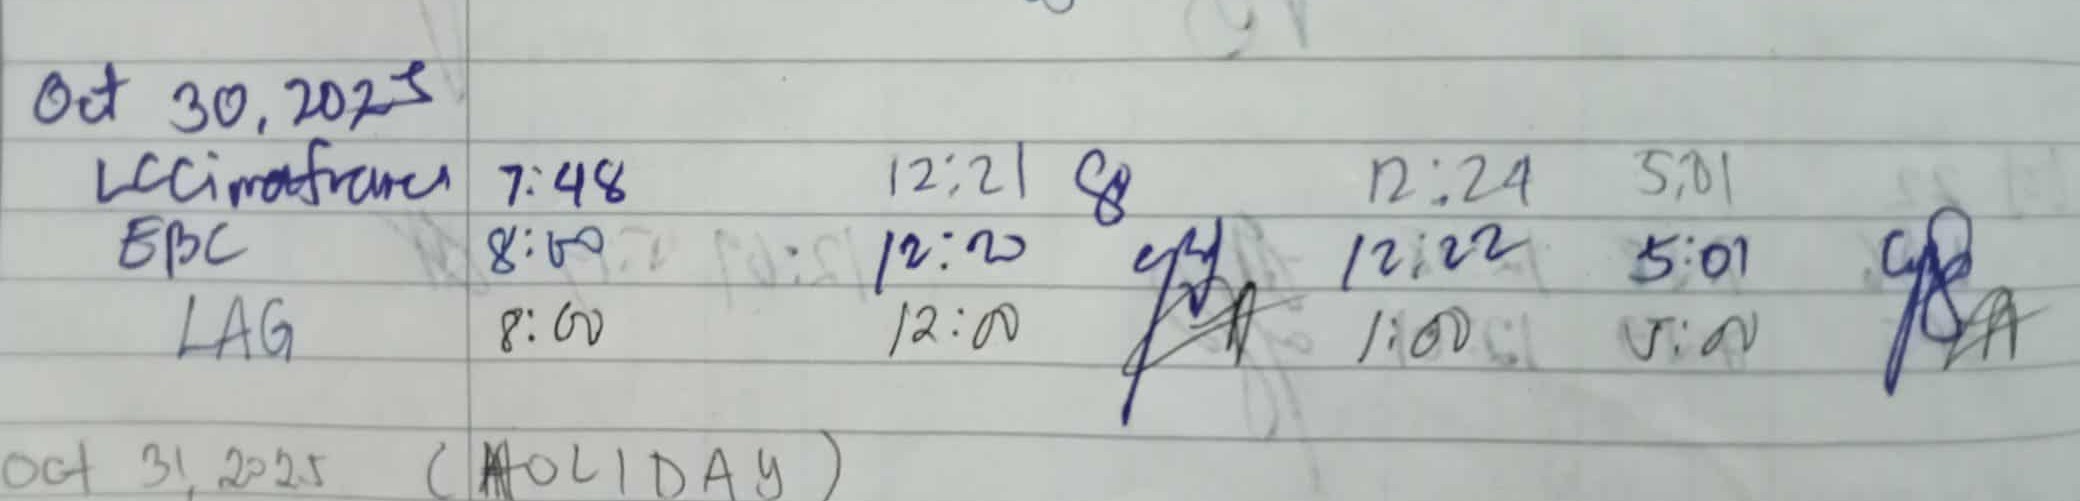 Oct 30, 2025
LCCimafranca 7:48 12:21 12:24 5:01
EBC 8:00 12:20 12:22 5:01
LAG 8:00 12:00 1:00 5:00
Oct 31, 2025 (HOLIDAY)